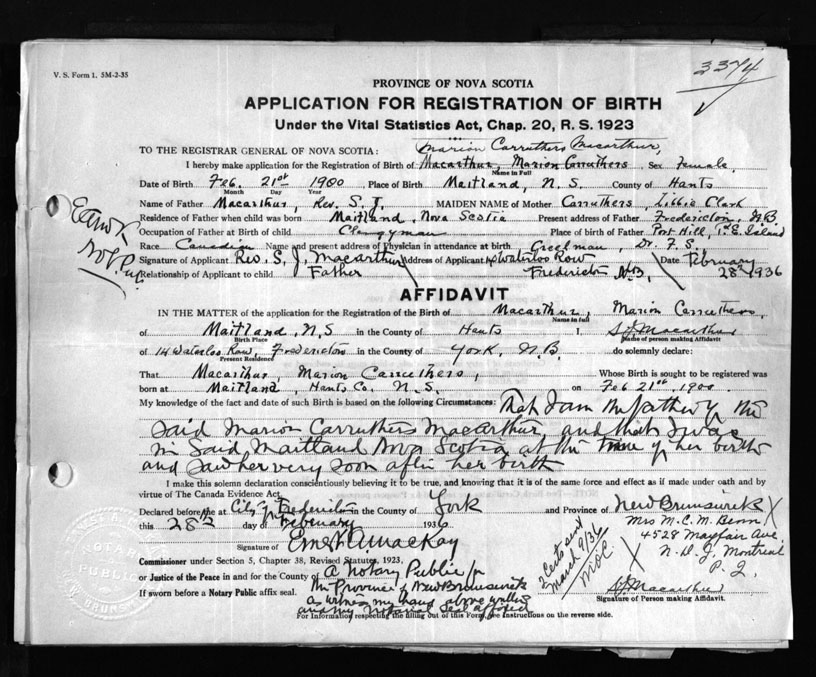 V. S. Form 1. 5M-2-35
3374
PROVINCE OF NOVA SCOTIA
APPLICATION FOR REGISTRATION OF BIRTH
Under the Vital Statistics Act, Chap. 20, R. S. 1923
Marion Carruthers Macarthur,
TO THE REGISTRAR GENERAL OF NOVA SCOTIA:
I hereby make application for the Registration of Birth of Macarthur, Marion Carruthers Sex Female,
Name in Full
Date of Birth Feb. 21st 1900 Place of Birth Maitland, N. S. County of Hants
Month Day Year
Name of Father Macarthur, Rev. S. J. MAIDEN NAME of Mother Carruthers, Libbie Clark
Residence of Father when child was born Maitland, Nova Scotia Present address of Father Fredericton, N.B.
Occupation of Father at Birth of child Clergyman Place of birth of Father Port Hill, P.E. Island
Race Canadian Name and present address of Physician in attendance at birth Creelman, Dr. F. S.
Signature of Applicant Rev. S. J. Macarthur Address of Applicant Waterloo Row Date February
Relationship of Applicant to child Father Fredericton N.B. 28th 1936
AFFIDAVIT
IN THE MATTER of the application for the Registration of Birth of Macarthur, Marion Carruthers,
Name in full
of Maitland, N.S. in the County of Hants I, S J Macarthur
Birth Place Name of person making Affidavit
of 14 Waterloo Row, Fredericton in the County of York, N.B. do solemnly declare:
Present Residence
That Macarthur Marion Carruthers, Whose Birth is sought to be registered was
born at Maitland, Hants Co. N. S. on Feb 21st, 1900.
My knowledge of the fact and date of such Birth is based on the following Circumstances: That I am the father of the
said Marion Carruthers Macarthur, and that I was
in said Maitland Nova Scotia at the time of her birth
and saw her very soon after her birth
I make this solemn declaration conscientiously believing it to be true, and knowing that it is of the same force and effect as if made under oath and by
virtue of The Canada Evidence Act.
Declared before me at City of Fredericton in the County of York and Province of New Brunswick
this 28th day of February 1936
Mrs M. C. M. Benn
4528 Mayfair Ave.
N. D. G. Montreal
P. Q.
Signature of Ernest A. MacKay
2 Certs sent
March 9/36
Commissioner under Section 5, Chapter 38, Revised Statutes, 1923,
or Justice of the Peace in and for the County of A Notary Public for
S J Macarthur
If sworn before a Notary Public affix seal. the Province of New Brunswick
Signature of Person making Affidavit.
as witness my hand above written
and my Notarial Seal affixed
For Information respecting the filling out of this Form, see Instructions on the reverse side.